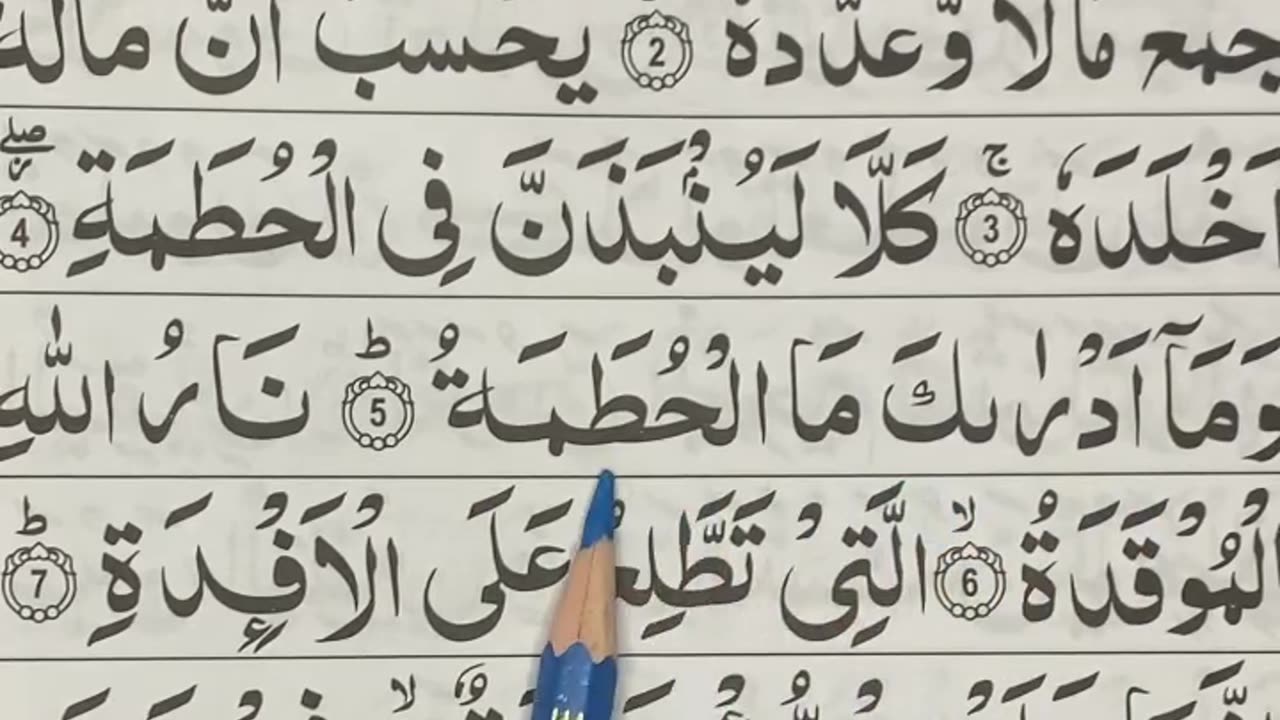 جمع مالا وّعدّده 2 يحسب انّ ماله
اَخْلَدَهٗ ۚ 3 كَلَّا لَيُنْۢبَذَنَّ فِى الْحُطَمَةِ ۖ 4
وَمَآ اَدْرٰىكَ مَا الْحُطَمَةُ ؕ 5 نَارُ اللّٰهِ
الْمُوْقَدَةُ ۙ 6 الَّتِىْ تَطَّلِعُ عَلَى الْاَفْـِٕدَةِ ؕ 7